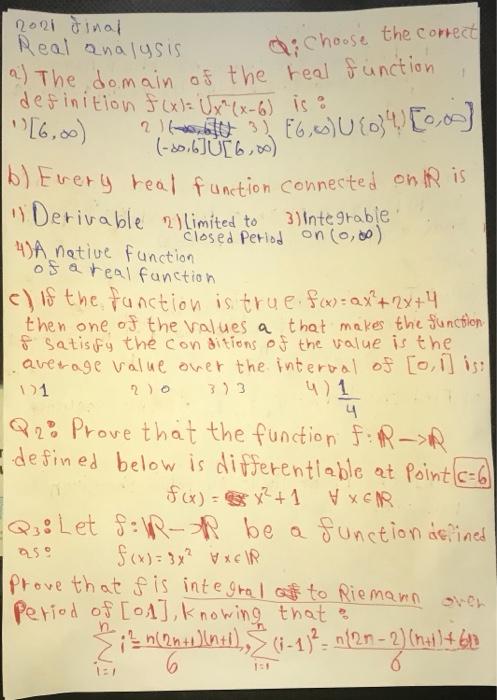 2021 final
Real analysis
Q: choose the correct
a) The domain of the real function
definition f(x)=√x²(x-6) is :
1) [6,∞) 2) (-∞,6]U[6,∞) 3) [6,∞)U{0} 4) [0,∞]
b) Every real function connected on R is
1) Derivable 2) Limited to closed Period 3) Integrable on (0,∞)
4) A native function
of a real function
c) If the function is true f(x)=ax²+2x+4
then one of the values a that makes the function
f satisfy the conditions of the value is the
average value over the interval of [0,1] is:
1) 1 2) 0 3) 3 4) 1/4
Q2: Prove that the function f:R→R
defined below is differentiable at Point c=6
f(x) = x²+1 ∀ x∈R
Q3: Let f:R→R be a function defined
as: f(x)=3x² ∀x∈R
Prove that f is integral to Riemann over
Period of [01], knowing that :
n∑i=1 i²= n(2n+1)(n+1)/6, n∑i=1 (i-1)²= n(2n-2)(n+1)+